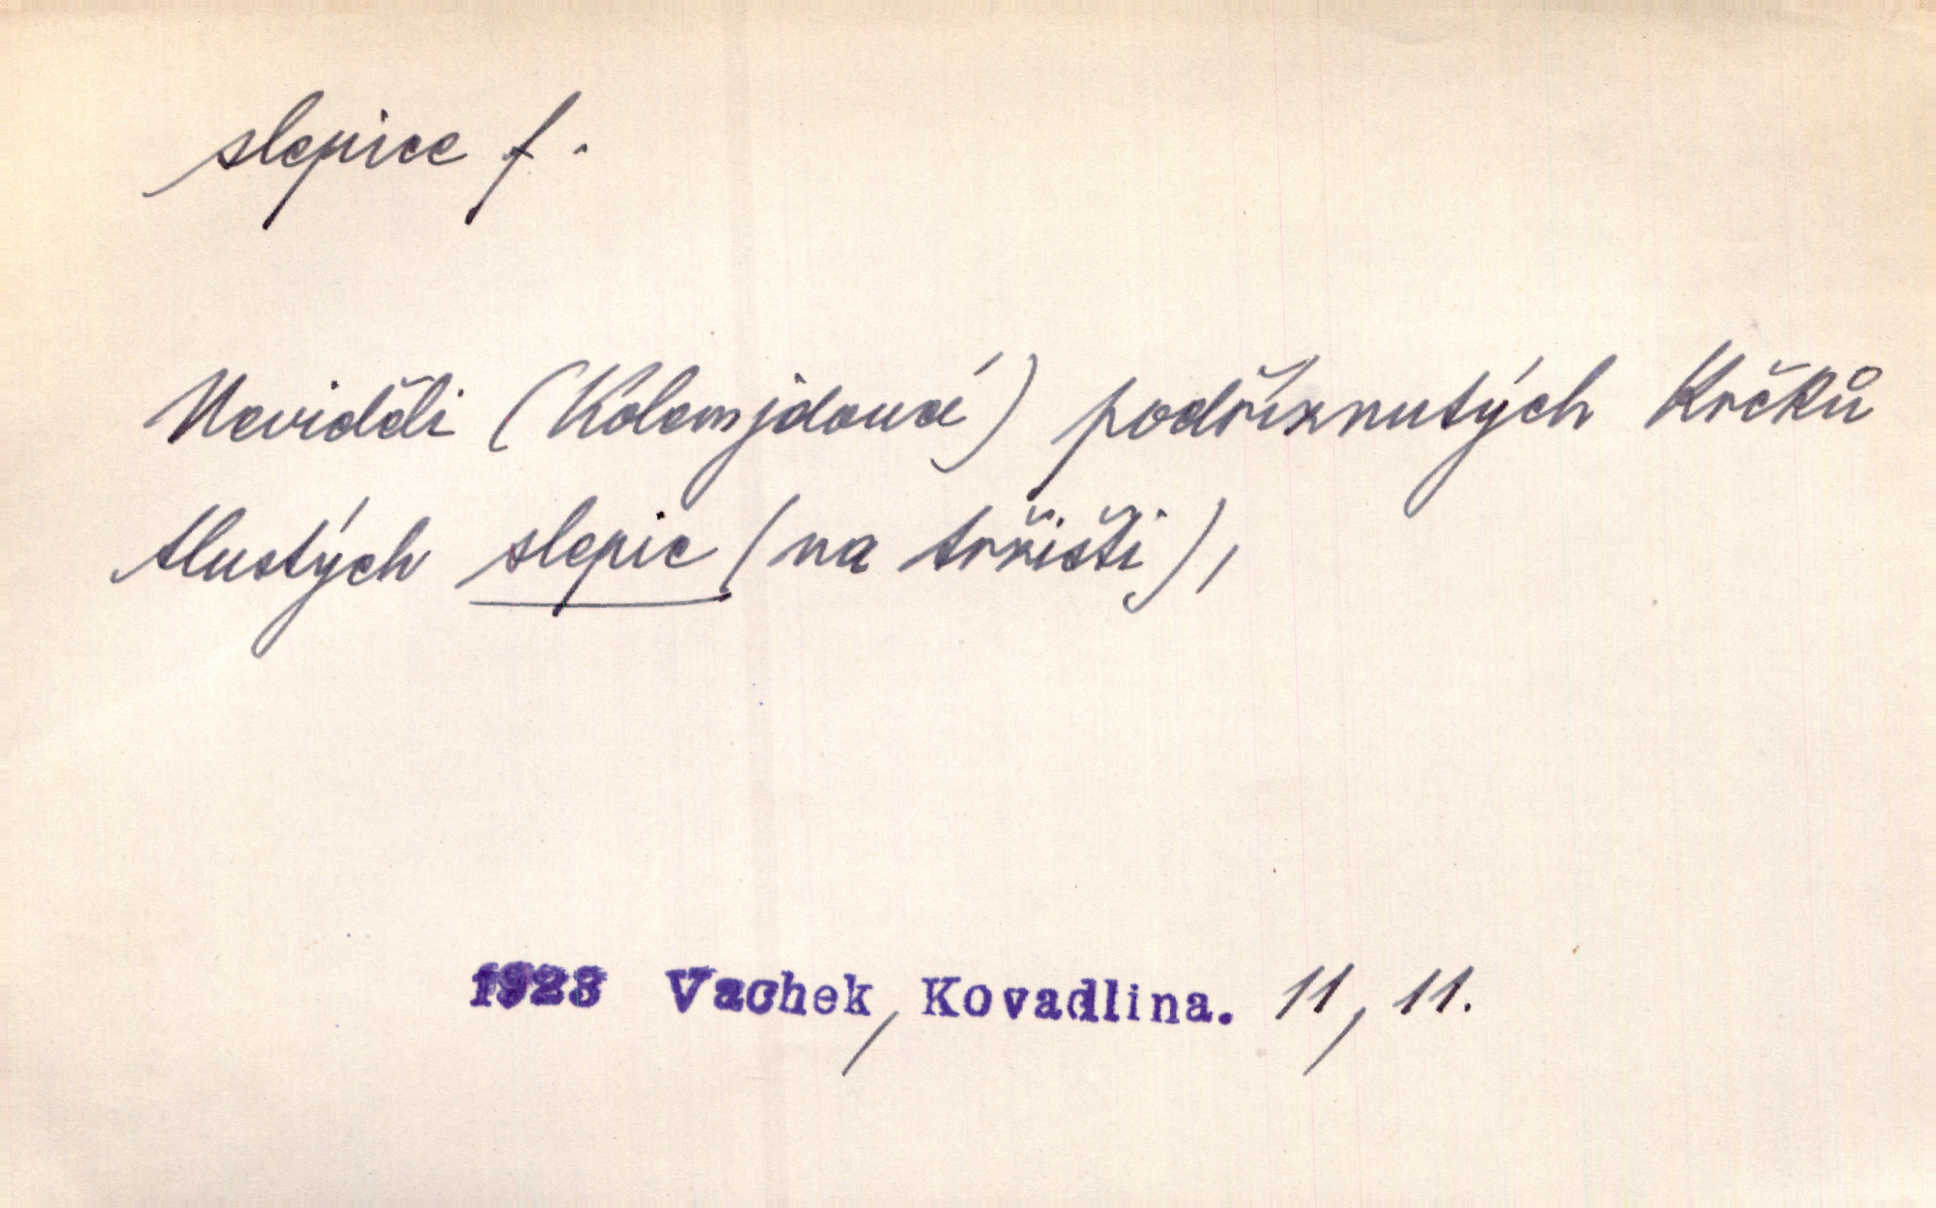 slepice f.
Neviděli (Kolemjdoucí) podříznutých krčků
tlustých slepic (na tržišti),
1923 Vachek, Kovadlina. 11, 11.